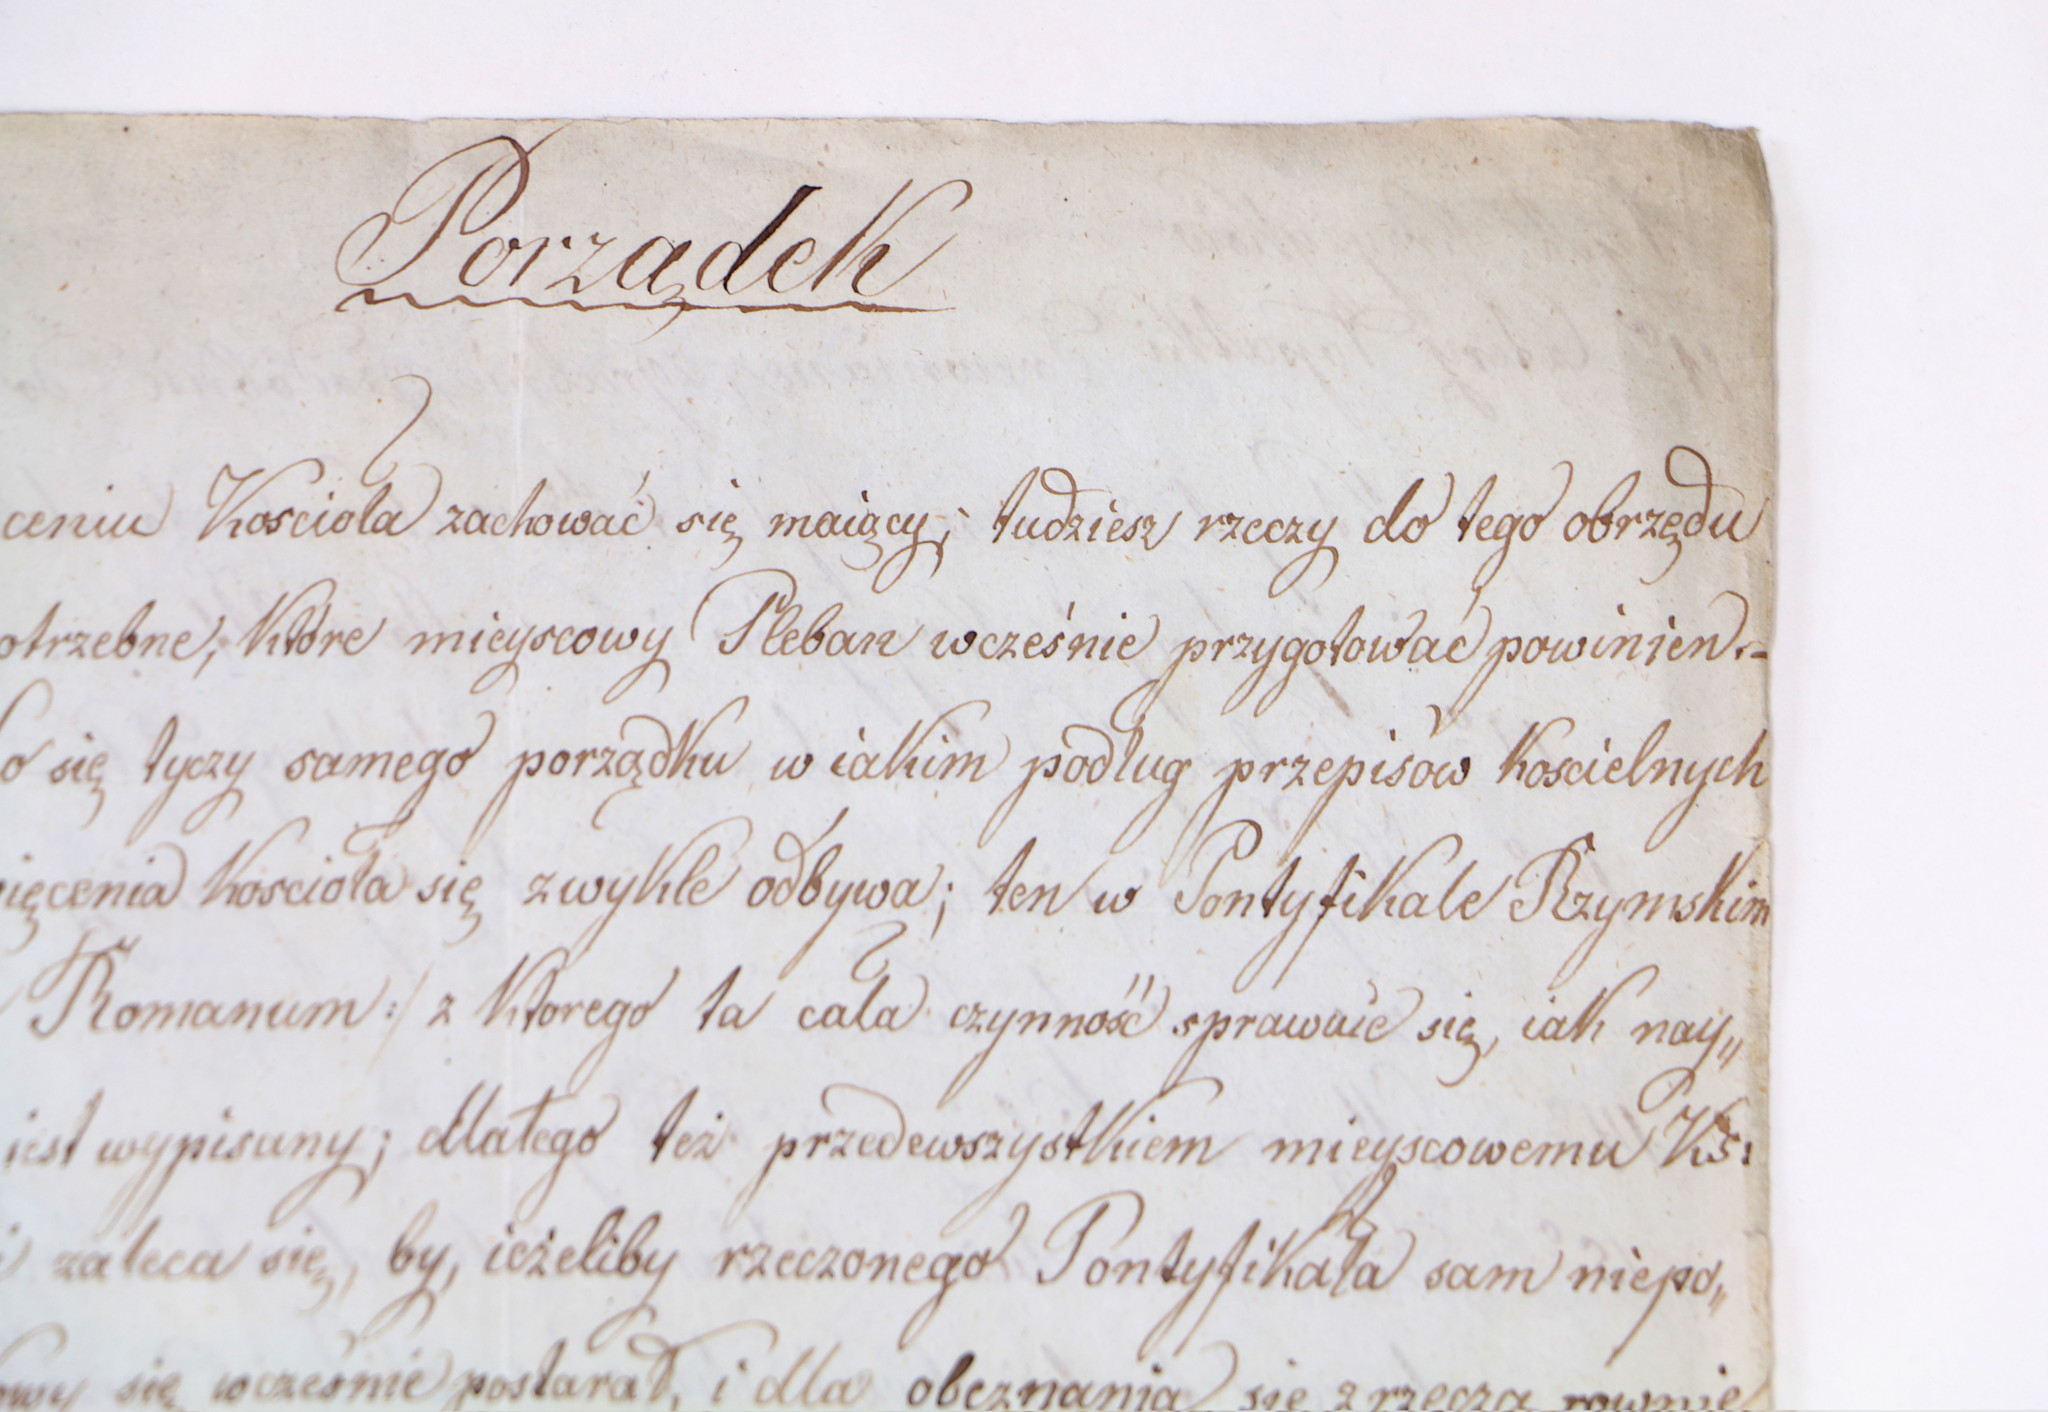 Porządek
ceniu Kościoła zachować się maiący; tudziesz rzeczy do tego obrzędu
otrzebne, które mieyscowy Pleban wcześnie przygotować powinien.-
o się tyczy samego porządku w iakim podług przepisów kościelnych
ięcenia kościoła się zwykle odbywa; ten w Pontyfikale Rzymskim
Romanum :/ z którego ta cała czynność sprawuie się, iak nay„
iest wypisany; dlatego też przedewszystkiem mieyscowemu Ks:
zaleca się, by, ieżeliby rzeczonego Pontyfikała sam niepo„
się wcześnie postarał, i dla obeznania się z rzeczą rownie